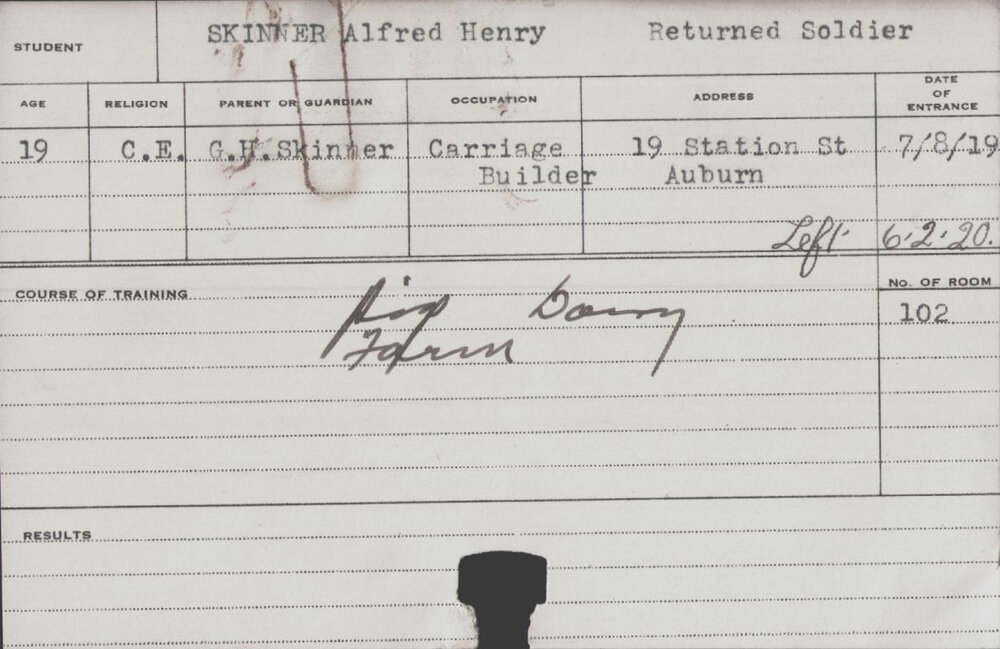 STUDENT SKINNER Alfred Henry Returned Soldier
AGE RELIGION PARENT OR GUARDIAN OCCUPATION ADDRESS DATE OF ENTRANCE
19 C.E. G.H.Skinner Carriage Builder 19 Station St Auburn 7/8/19
Left 6.2.20.
COURSE OF TRAINING No. OF ROOM
Dairy 102
Farm
RESULTS